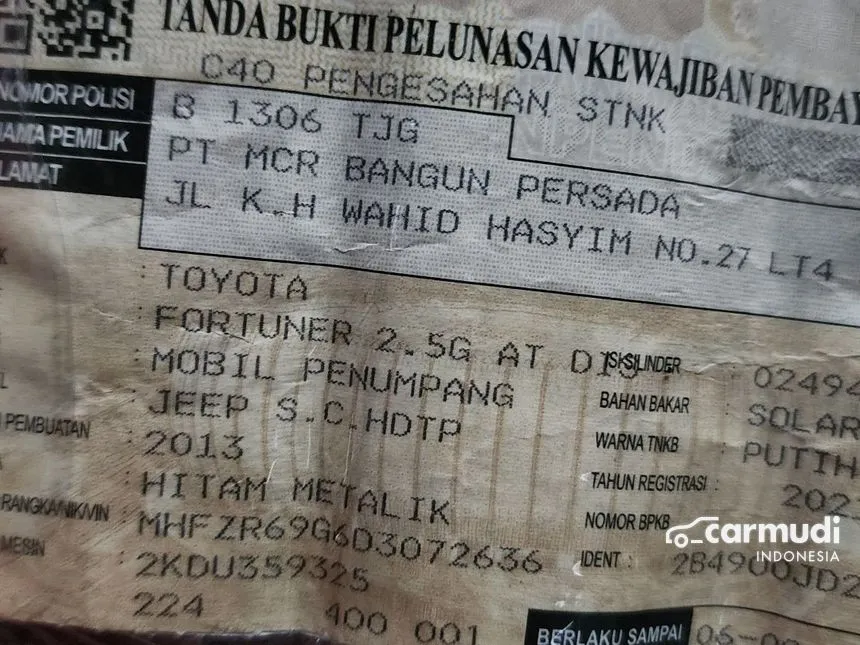 TANDA BUKTI PELUNASAN KEWAJIBAN PEMBAY
C40 PENGESAHAN STNK
NOMOR POLISI B 1306 TJG
NAMA PEMILIK PT MCR BANGUN PERSADA
LAMAT JL K.H WAHID HASYIM NO.27 LT4
: TOYOTA
: FORTUNER 2.5G AT
: MOBIL PENUMPANG
: JEEP S.C.HDTP
PEMBUATAN : 2013
: HITAM METALIK
RANGKA/NIK/VIN : MHFZR69G6D3072636
MESIN : 2KDU359325
224 400 001
ISI SILINDER : 02494
BAHAN BAKAR : SOLAR
WARNA TNKB : PUTIH
TAHUN REGISTRASI : 202
NOMOR BPKB
IDENT : 2B4900JD2
BERLAKU SAMPAI 06-0
carmudi
INDONESIA